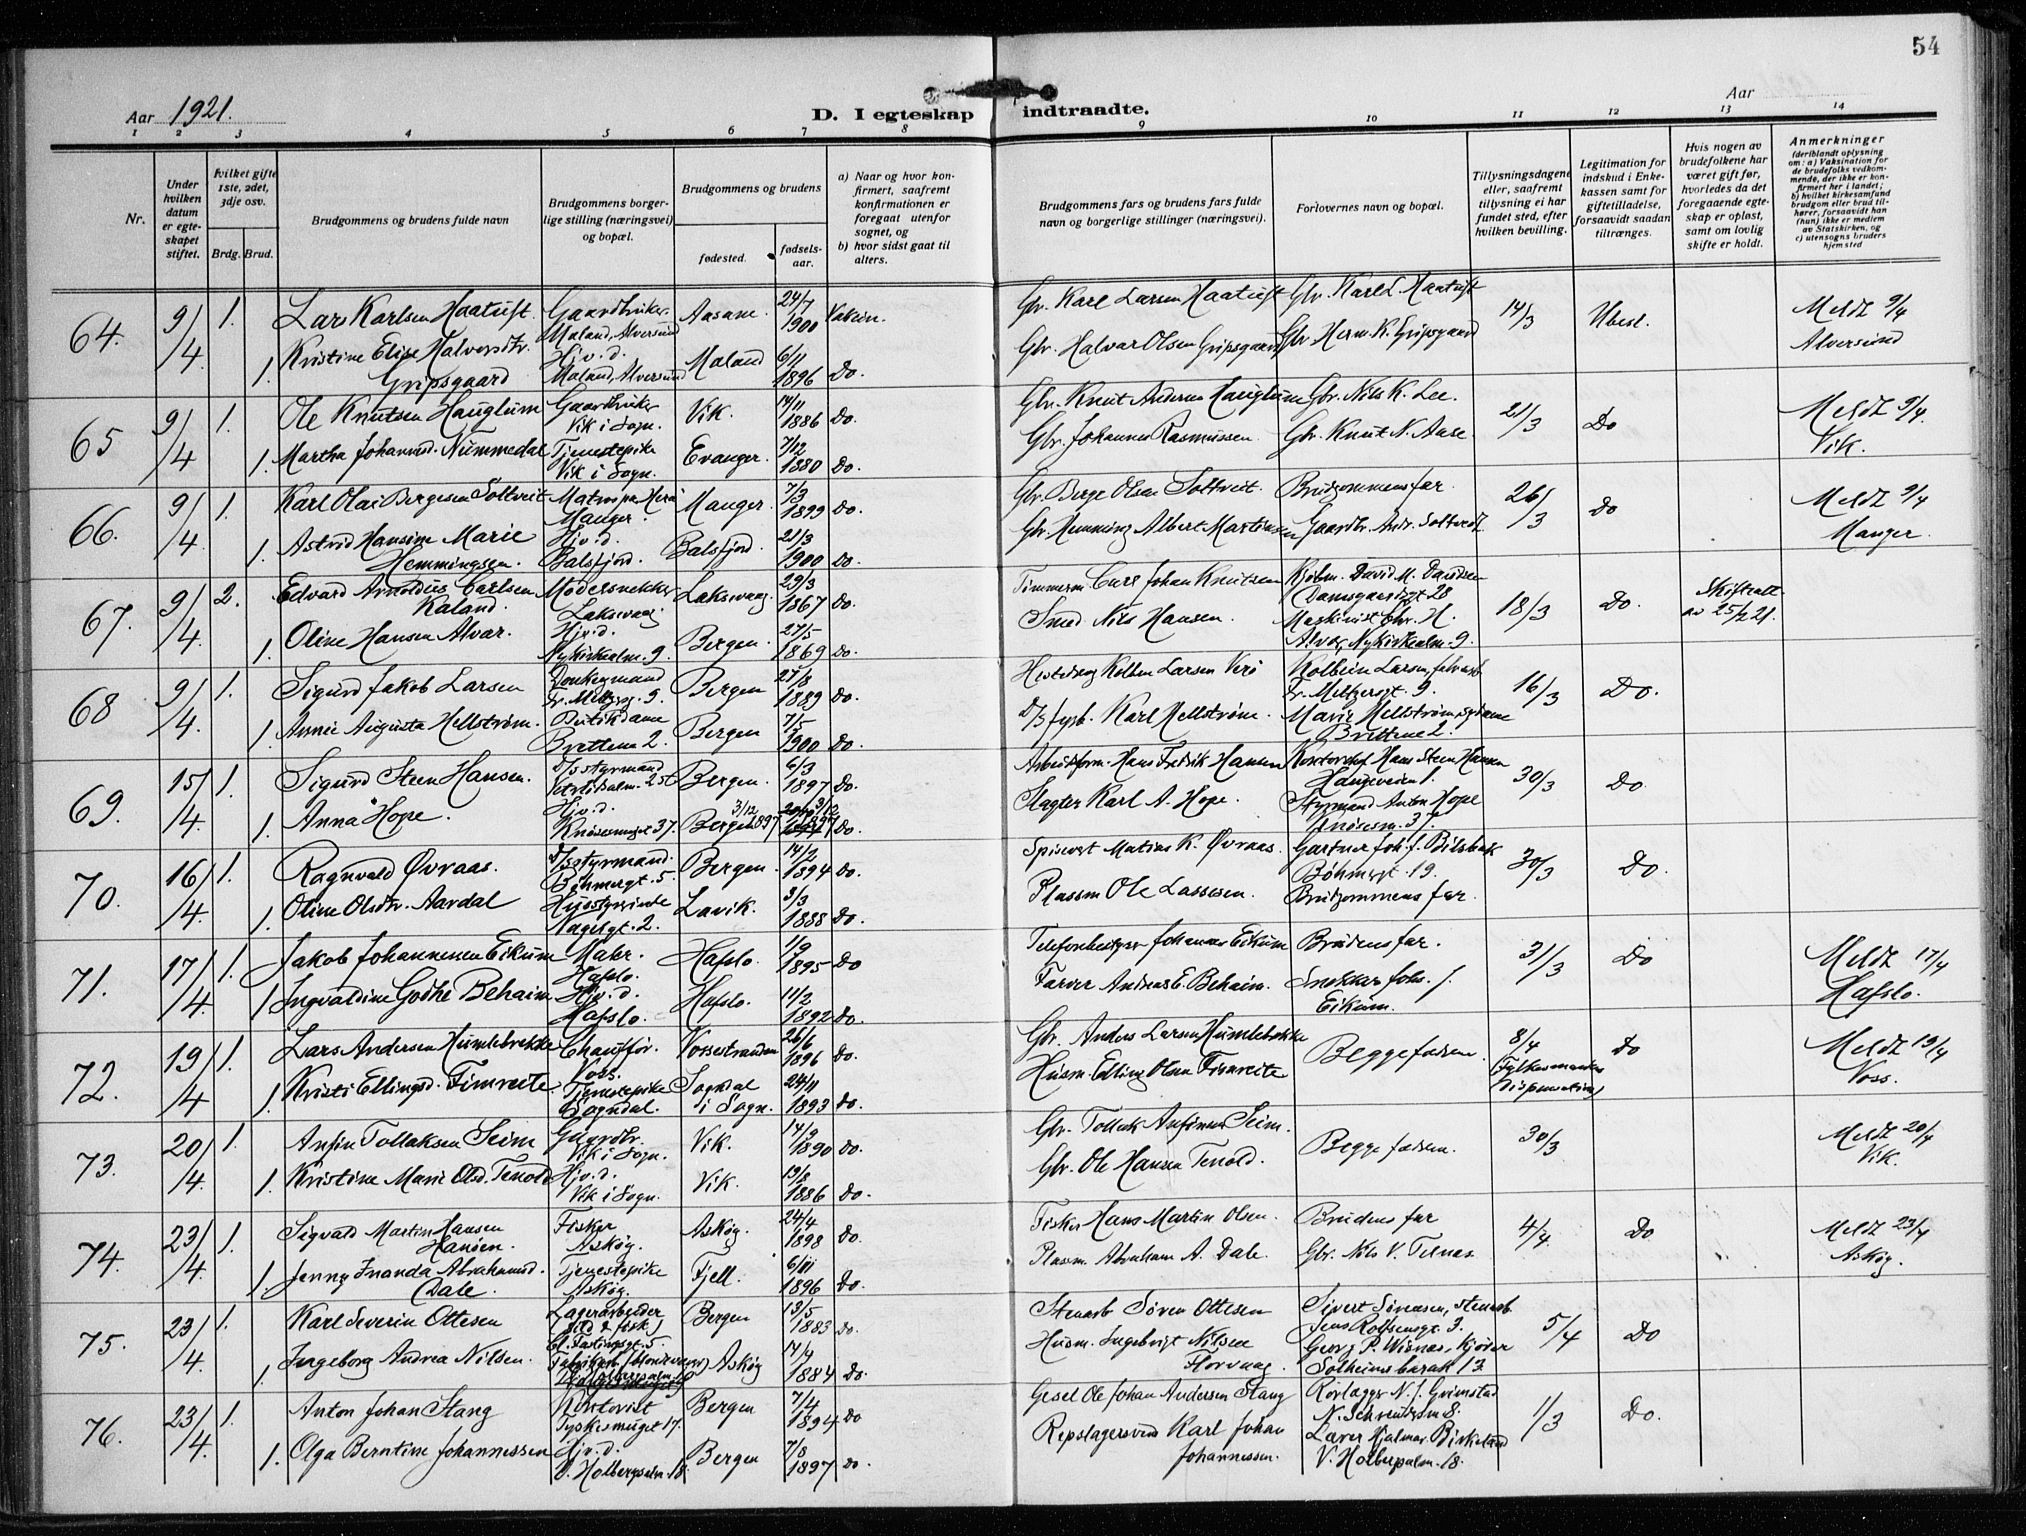 54
Aar 1921.
D. I egteskap indtraadte.
Aar
1 2 3 4 5 6 7 8 9 10 11 12 13 14
Nr.
Under hvilken datum er egteskapet stiftet.
Hvilket gifte 1ste, 2det, 3dje osv.
Brdg. Brud.
Brudgommens og brudens fulde navn
Brudgommens borgerlige stilling (næringsvei) og bopæl.
Brudgommens og brudens
fødested.
fødselsaar.
a) Naar og hvor konfirmert, saafremt konfirmationen er foregaat utenfor sognet, og
b) hvor sidst gaat til alters.
Brudgommens fars og brudens fars fulde navn og borgerlige stillinger (næringsvei).
Forlovernes navn og bopæl.
Tillysningsdagene eller, saafremt tillysning ei har fundet sted, efter hvilken bevilling.
Legitimation for indskud i Enkekassen samt for giftetilladelse, forsaavidt saadan tiltrænges.
Hvis nogen av brudefolkene har været gift før, hvorledes da det foregaaende egteskap er opløst, samt om lovlig skifte er holdt.
Anmerkninger
(deriblandt oplysning om: a) Vaksination for de brudefolks vedkommende, der ikke er konfirmert her i landet; b) hvilket kirkesamfund brudgom eller brud tilhører, forsaavidt han (hun) ikke er medlem av Statskirken, og c) utensogns bruders hjemsted
64. 9/4 1. Lars Karlsen Haatuft. Gaardbruker Maland, Alversund Aasane. 24/7 1900 Vaksin. Gbr. Karl Larsen Haatuft Gbr. Karl L. Haatuft 14/3 Ubesl. Meldt 9/4 Alversund
1. Kristine Elise Halversdtr. Gripsgaard Hj.v.d. Maland, Alversund Maland 6/11 1896 Do. Gbr. Halvar Olsen Gripsgaard Gbr. Herm. K. Gripsgaard
65 9/4 1. Ole Knutsen Hauglum Gaardbruker Vik i Sogn. Vik. 14/11 1886 Do. Gbr. Knut Andersen Hauglum Gbr. Nils K. Lee. 21/3 Do Meldt 9/4. Vik.
1. Martha Johannesd. Nummedal Tjenestepike Vik i Sogn. Evanger. 7/12 1880 Do. Gbr. Johannes Rasmussen Gbr. Knut N. Aase.
66. 9/4 1. Karl Olai Bergesen Soltveit Manger. Manger. 7/3 1899 Do. Gbr. Berge Olsen Soltveit. Brudgommens far. 26/3 Do Meldt 9/4 Manger.
1. Astrid Hansine Marie Hemmingsen. Hj.v.d. Balsfjord. Balsfjord. 21/3 1900 Do. Gbr. Hemming Albert Martinsen Gaardbr. Andr. Soltveit
67. 9/4 2. Edvard Arnoldus Carlsen Kaland. Modelsnekker Laksevaag Laksevaag. 29/3 1867 Do. Timmerm. Carl Johan Knutsen Kjøbm. David M. Davidsen Damsgaardsgt 28 18/3 Do. Skifteatt. av 25/2 21.
1. Oline Hansen Alvær. Hj.v.d. Nykirkealm. 9. Bergen. 27/5 1869 Do. Smed Nils Hansen. Maskinist Chr. H. Alvær, Nykirkealm. 9.
68 9/4 1. Sigurd Jakob Larsen Donkeymand Fr. Meltzersg. 9. Bergen 27/8 1889 Do. Kolben Larsen Fr. Meltzersgt. 9. 16/3 Do.
1. Annie Augusta Hellstrøm. Butikdame Brettene 2. Bergen 7/5 1900 Do. D/S fyrb. Karl Hellstrøm. Marie Hellstrøm, sydame Brettene 2.
69. 15/4 1. Sigurd Steen Hansen. D/sstyrmand Bergen. 6/3 1897 Do. Arbeidsform. Hans Fredrik Hansen Kontorchef Hans Steen Hansen Haugeveien 1. 30/3 Do
1. Anna Hope. Hj.v.d. Knøsesmuget 37. Bergen 3/12 1897 Do. Slagter Karl A. Hope. Styrmand Anton Hope Knøsesm. 37.
70. 16/4 1. Ragnvald Øvraas. D/sstyrmand. Bøhmergt. 5. Bergen. 14/2 1894 Do. Spisevert Matias K. Øvraas. Gartner Joh. J. Bilsbak Bøhmergt. 19. 30/3 Do.
1. Oline Olsdtr. Aardal Husstyrerinde Nagelgt. 2. Lavik. 3/3 1888 Do. Plassm Ole Lassesen. Brudgommens far.
71. 17/4 1. Jakob Johannessen Eikum Maler. Hafslo. Hafslo. 1/9 1895 Do Telefonbestyrer Johannes Eikum Brudens far. 31/3 Do Meldt 17/4 Hafslo.
1. Ingvaldine Gødke Behaim Hj.v.d. Hafslo. Hafslo. 11/2 1892 Do. Farver Andreas E. Behaim. Snekker Johs. J. Eikum.
72. 19/4 1. Lars Andersen Humlebrekke Chauffør. Voss. Vossestranden 26/6 1896 Do. Gbr. Anders Larsen Humlebrekke Begge fædrene. 8/4 Fylkesmandens dispensation Do Meldt 19/4 Voss.
1. Kristi Ellingsd. Fimreite Tjenestepike Sogndal. Sogndal i Sogn. 24/11 1893 Do. Husm. Elling Olsen Fimreite
73. 20/4 1. Anfin Tollaksen Seim Gaardbr. Vik i Sogn. Vik. 14/9 1890 Do. Gbr. Tollak Anfinsen Seim. Begge fædrene. 30/3 Meldt 20/4 Vik.
1. Kristine Marie Olsd. Tenold Hj.v.d. Vik i Sogn. Vik. 19/8 1886 Do. Gbr. Ole Hansen Tenold.
74. 23/4 1. Sigvald Martin Hansen Hansen. Fisker Askøy. Askøy. 24/4 1898 Do. Fisker Hans Martin Olsen. Brudens far 4/4. Do Meldt 23/4 Askøy.
1. Jenny Inanda Abrahamsd. Dale. Tjenestepike Askøy. Fjell. 6/11 1896 Do. Plassm. Abraham A. Dale. Gbr. Nils V. Ternes
75. 23/4. 1. Karl Severin Ottesen Lagerarbeider (sild & fisk) Bergen 13/5 1883 Do. Stenarb Søren Ottesen Sivert Sørensen, stenarb Jens Rolfsensgt. 3. 5/4 Do
1. Ingeborg Andrea Nilsen. Askøy 14/4 1884 Do. Husm. Ingebrigt Nilsen Florvaag. Georg P. Wisnes, kjører Solheimsbarak 13
76. 23/4. 1. Anton Johan Stang Kontorist Tyskesmuget 17. Bergen 7/4 1894 Do Gesel Ole Johan Andersen Stang Rørlægger N. J. Grimstad 1/3 Do.
1. Olga Berntine Johannessen Hj.v.d. V. Holbergsalm. 18. Bergen 7/8 1897 Do. Repslagersvend Karl Johan Johannessen. Lærer Hjalmar Birkeland V. Holbergsalm. 18.